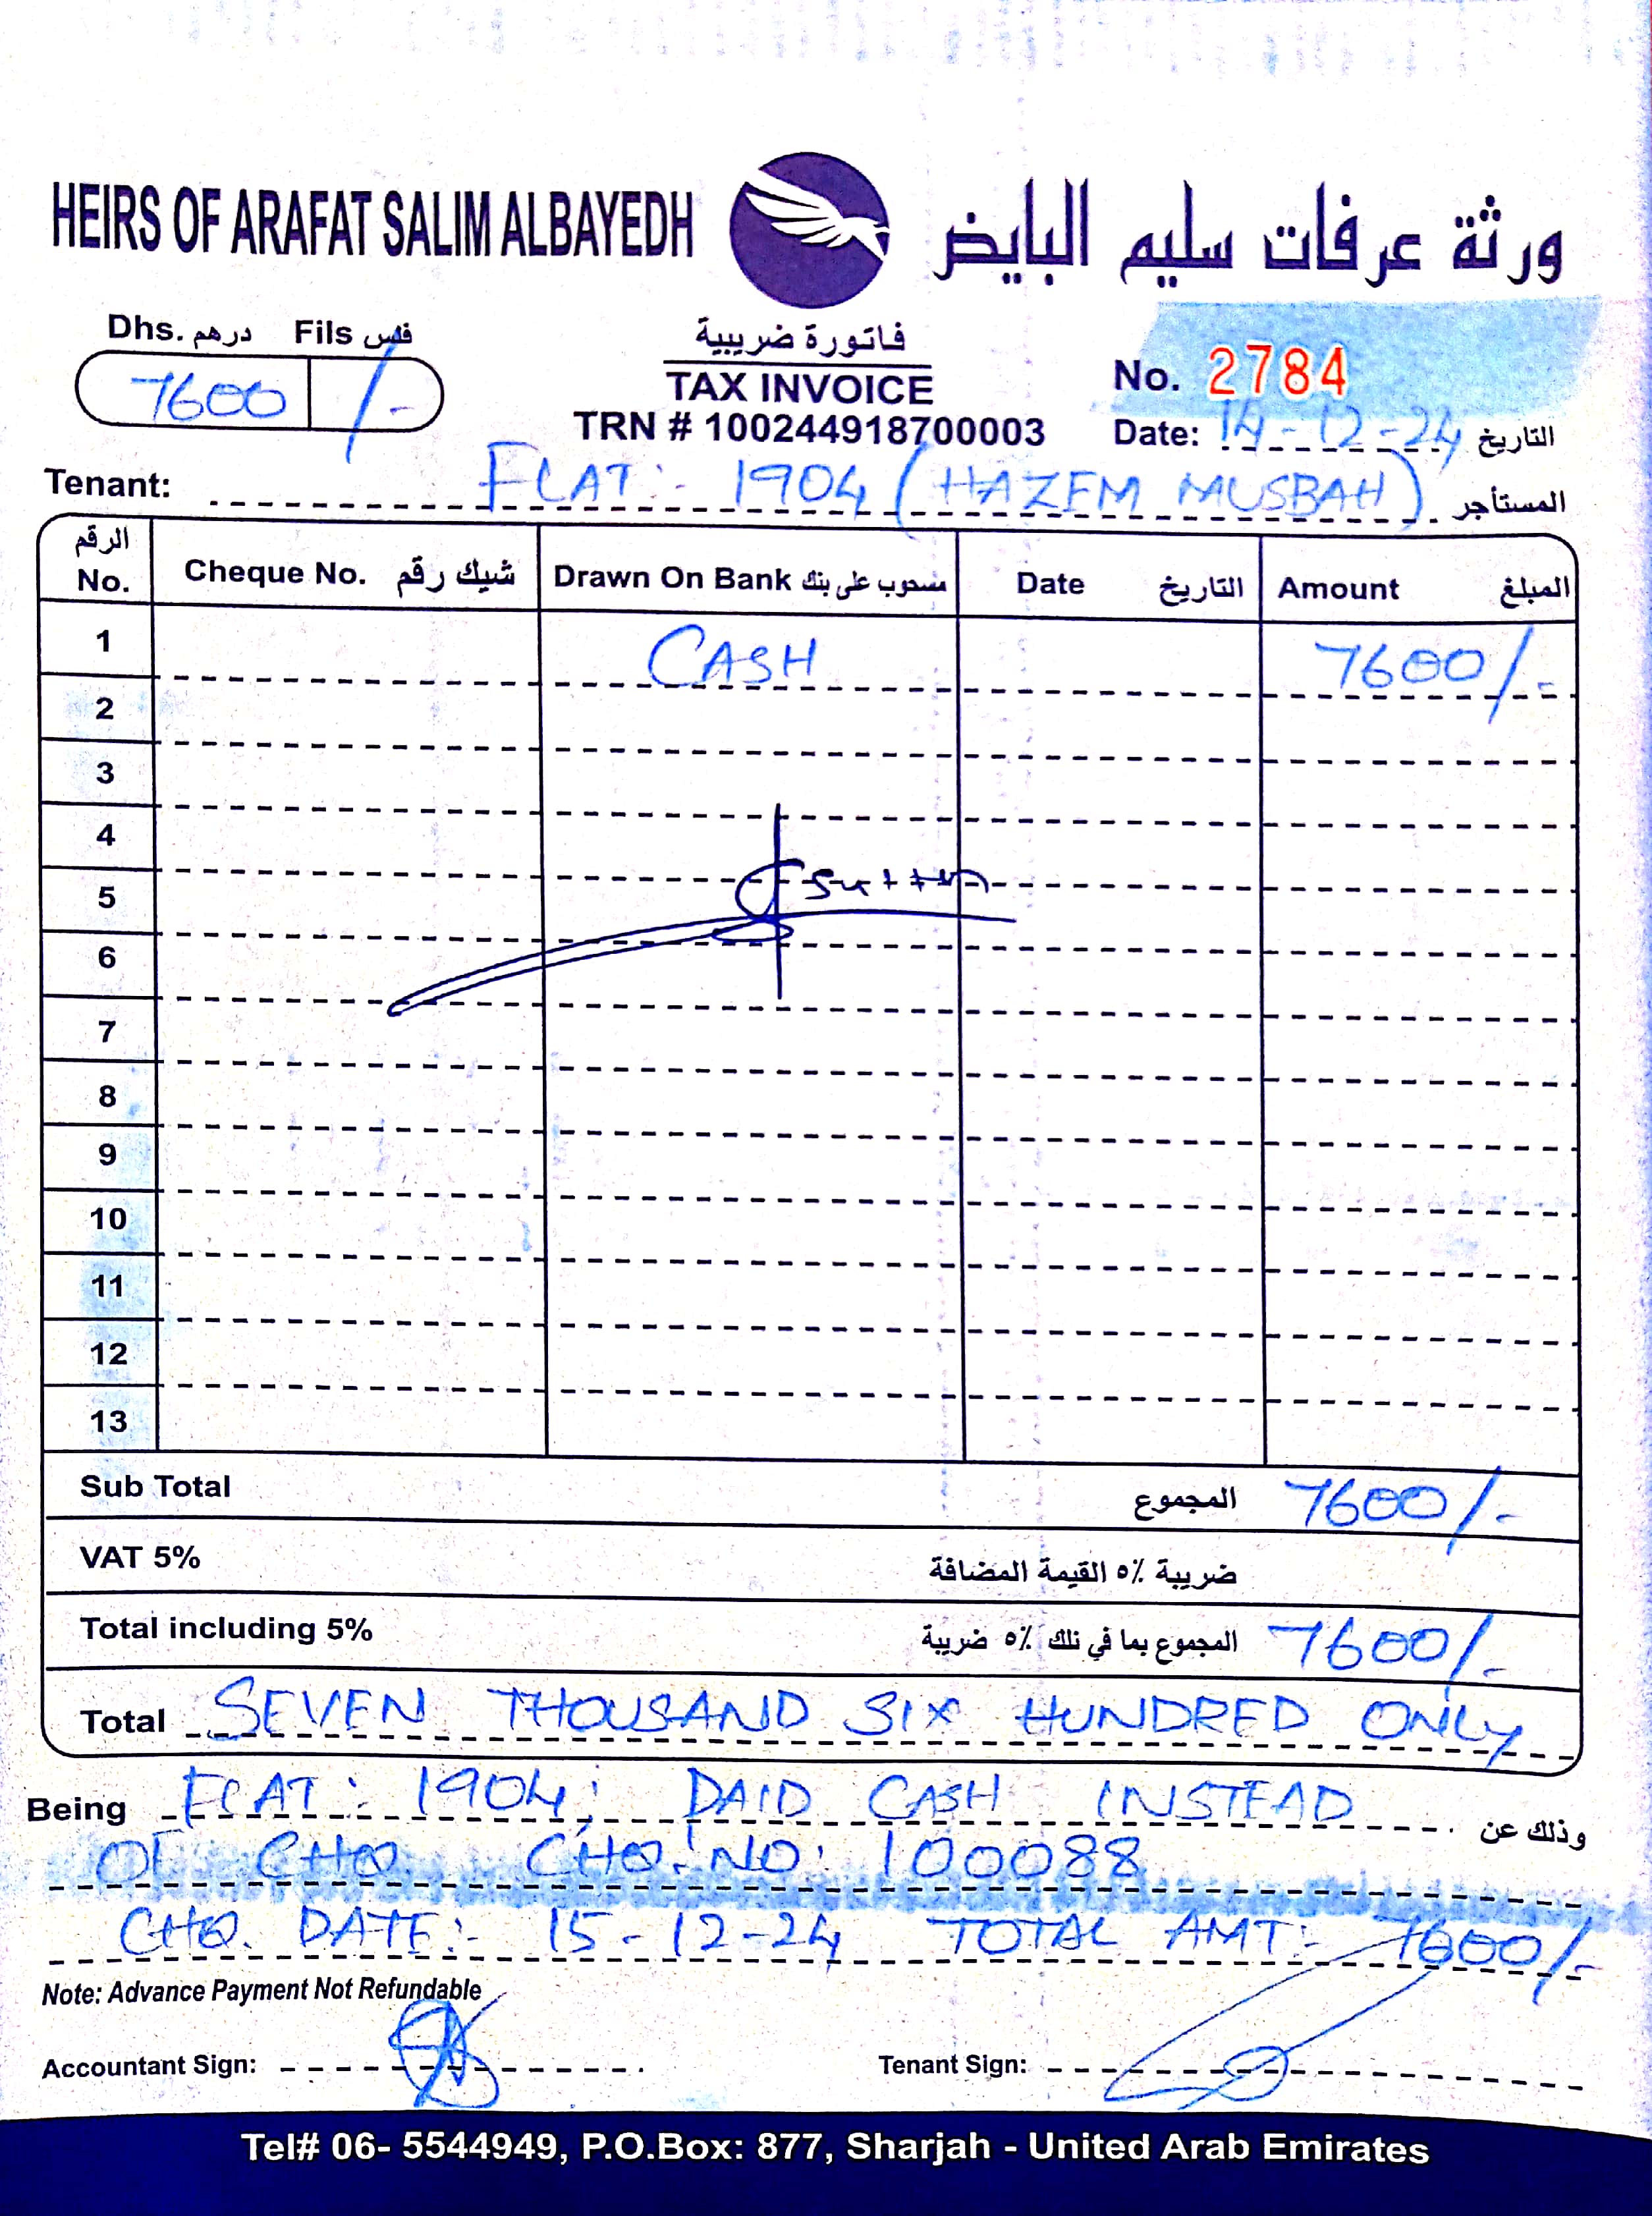 HEIRS OF ARAFAT SALIM ALBAYEDH ورثة عرفات سليم البايض
Dhs. درهم Fils فلس
7600 /-
فاتورة ضريبية
TAX INVOICE
TRN # 100244918700003
No. 2784
Date: 14-12-24 التاريخ
Tenant: FLAT:- 1904 (HAZEM MUSBAH) المستأجر
الرقم No. Cheque No. شيك رقم Drawn On Bank مسحوب على بنك Date التاريخ Amount المبلغ
1 CASH 7600/-
2
3
4
5
6
7
8
9
10
11
12
13
Sub Total المجموع 7600/-
VAT 5% ضريبة ٥٪ القيمة المضافة
Total including 5% المجموع بما في ذلك ٥٪ ضريبة 7600/-
Total SEVEN THOUSAND SIX HUNDRED ONLY
Being FLAT: 1904; PAID CASH INSTEAD وذلك عن
OF CHQ. CHQ. NO: 100088
CHQ. DATE:- 15-12-24 TOTAL AMT:- 7600/-
Note: Advance Payment Not Refundable
Accountant Sign: Tenant Sign:
Tel# 06- 5544949, P.O.Box: 877, Sharjah - United Arab Emirates